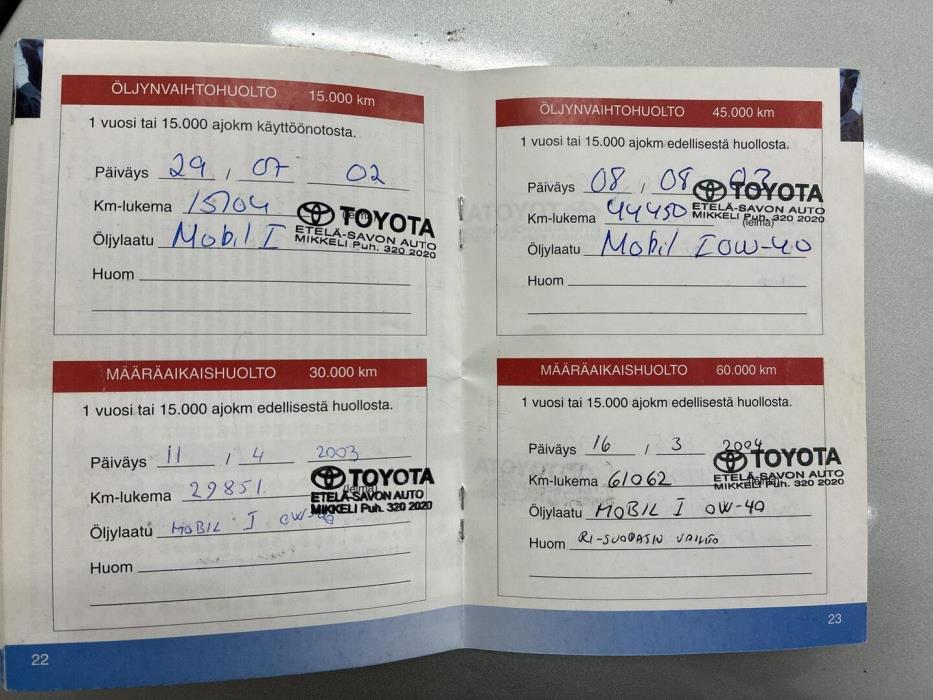 ÖLJYNVAIHTOHUOLTO 15.000 km
1 vuosi tai 15.000 ajokm käyttöönotosta.
Päiväys 29 / 07 02
Km-lukema 15704
(leima)
TOYOTA
ETELÄ-SAVON AUTO
MIKKELI Puh. 320 2020
Öljylaatu Mobil I
Huom
MÄÄRÄAIKAISHUOLTO 30.000 km
1 vuosi tai 15.000 ajokm edellisestä huollosta.
Päiväys 11 / 4 2003
Km-lukema 29851
(leima)
TOYOTA
ETELÄ-SAVON AUTO
MIKKELI Puh. 320 2020
Öljylaatu MOBIL I 0W-40
Huom
22
ÖLJYNVAIHTOHUOLTO 45.000 km
1 vuosi tai 15.000 ajokm edellisestä huollosta.
Päiväys 08 / 08 03
Km-lukema 44450
TOYOTA
ETELÄ-SAVON AUTO
MIKKELI Puh. 320 2020
(leima)
Öljylaatu Mobil I 0W-40
Huom
MÄÄRÄAIKAISHUOLTO 60.000 km
1 vuosi tai 15.000 ajokm edellisestä huollosta.
Päiväys 16 / 3 2004
Km-lukema 61062
TOYOTA
ETELÄ-SAVON AUTO
MIKKELI Puh. 320 2020
(leima)
Öljylaatu MOBIL I 0W-40
Huom RI-SUODATIN VAIHTO
23